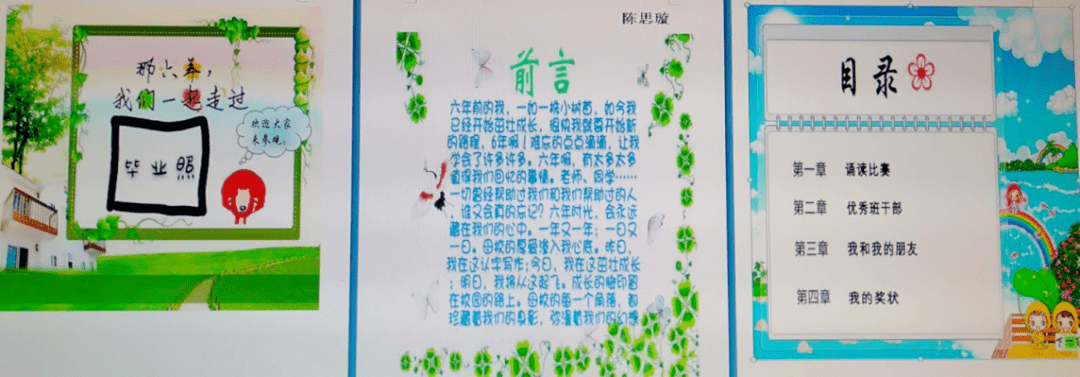 那六年，
我们一起走过
毕业照
欢迎大家
来参观。
陈思璇
前言
六年前的我，一如一株小树苗，如今我
已经开始茁壮成长，很快我就要开始新
的路程，6年啊！难忘的点点滴滴，让我
学会了许多许多。六年啊，有太多太多
值得我们回忆的事情。老师、同学……
一切曾经帮助过我们和我们帮助过的人
，谁又会真的忘记？六年时光，会永远
藏在我们的心中。一年又一年；一日又
一日。母校的厚爱渗入我心底。昨日，
我在这认字写作；今日，我在这茁壮成长
；明日，我将从这起飞。成长的脚印留
在校园的路上。母校的每一个角落，都
珍藏着我们的身影，弥漫着我们的幻想
目录
第一章 诵读比赛
第二章 优秀班干部
第三章 我和我的朋友
第四章 我的奖状